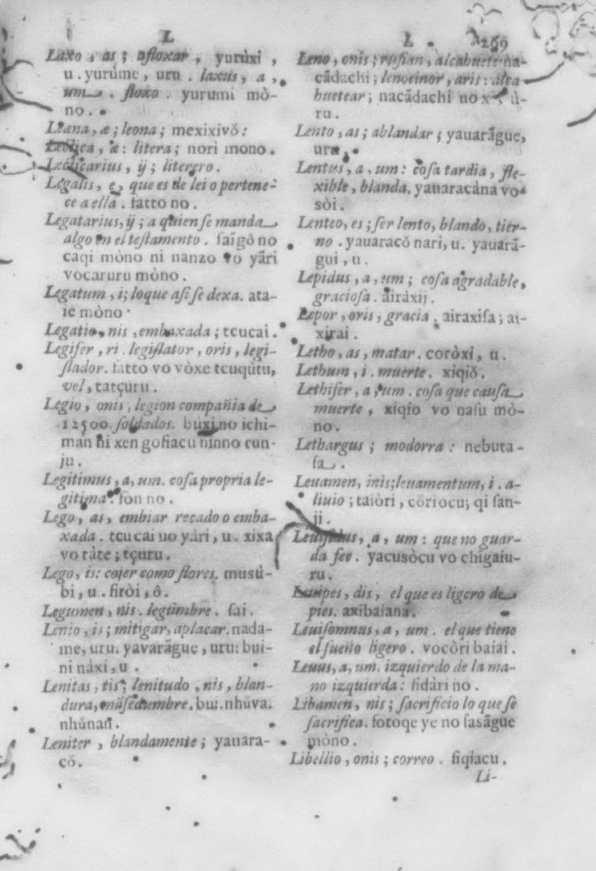 L
Laxo, as; afloxar, yurùxi,
u. yurùme, uru. laxus, a,
um. floxo. yurumi mò-
no.
Læna, æ; leona; mexixivŏ:
æ: litera; nori mono.
Lecticarius, ÿ; literero.
Legalis, e, que es de lei o pertene-
ce a ella. fatto no.
Legatarius, ÿ; a quien se manda
algo en el testamento. faĩgŏ no
caqi mòno ni nanzo vo yãri
vocaruru mòno.
Legatum, i; loque asi se dexa. ata-
ie mòno
Legatio, nis, embaxada; tcucai.
Legifer, ri. legislator, oris, legi-
slador. fatto vo vòxe tcuqùtu,
vel, tatçuru.
Legio, onis, legion compañia de
12500 soldados. buxi no ichi-
man ni xen gofiacu ninno cun-
ju.
Legitimus, a, um. cosa propria le-
gitima. fon no.
Lego, as, embiar recado o emba-
xada. tcucai uo yàri, u. xixa
vo tàte; tçuru.
Lego, is: cojer como flores. musú-
bi, u. firòi, ô.
Legumen, nis. legùmbre. fai.
Lenio, is; mitigar, aplacar. nada-
me, uru. yavarāgue, uru: bui-
ni nàxi, u.
Lenitas, tis; lenitudo, nis, blan-
dura, mãsedumbre. bui. nhúva.
nhúnan.
Leniter, blandamente; yauara-
cŏ.
L 269
Leno, onis; rufian, alcahuete na-
cādachi; lenocinor, aris: alca
huetear; nacādachi no
ru.
Lento, as; ablandar; yauarāgue,
uru.
Lentus, a, um: cosa tardia, fle-
xible, blanda. yauaracàna vo
sòi.
Lenteo, es; ser lento, blando, tier-
no. yauaracŏ nari, u. yauarā-
gui, u.
Lepidus, a, um; cosa agradable,
graciosa. airàxij.
Lepor, oris, gracia, airaxisa; ai-
xirai.
Letho, as, matar. coròxi, u.
Lethum, i. muerte. xiqiŏ.
Lethifer, a, um. cosa que causa
muerte, xiqio vo nasu mò-
no.
Lethargus; modorra: nebuta-
sa.
Leuamen, inis; leuamentum, i. a-
liuio; taiòri, còriocu; qi san-
ji.
a, um: que no guar-
da fee. yacusòcu vo chigaiu-
ru.
dis, el que es ligero de
pies. axibaiana.
Leuisomnus, a, um. el que tiene
el sueño ligero. vocòri baiai.
Leuus, a, um. izquierdo de la ma-
no izquierda: fidàri no.
Libamen, nis; sacrificio lo que se
sacrifica. fotoqe ye no sasāgue
mòno.
Libellio, onis; correo. fiqiacu.
Li-